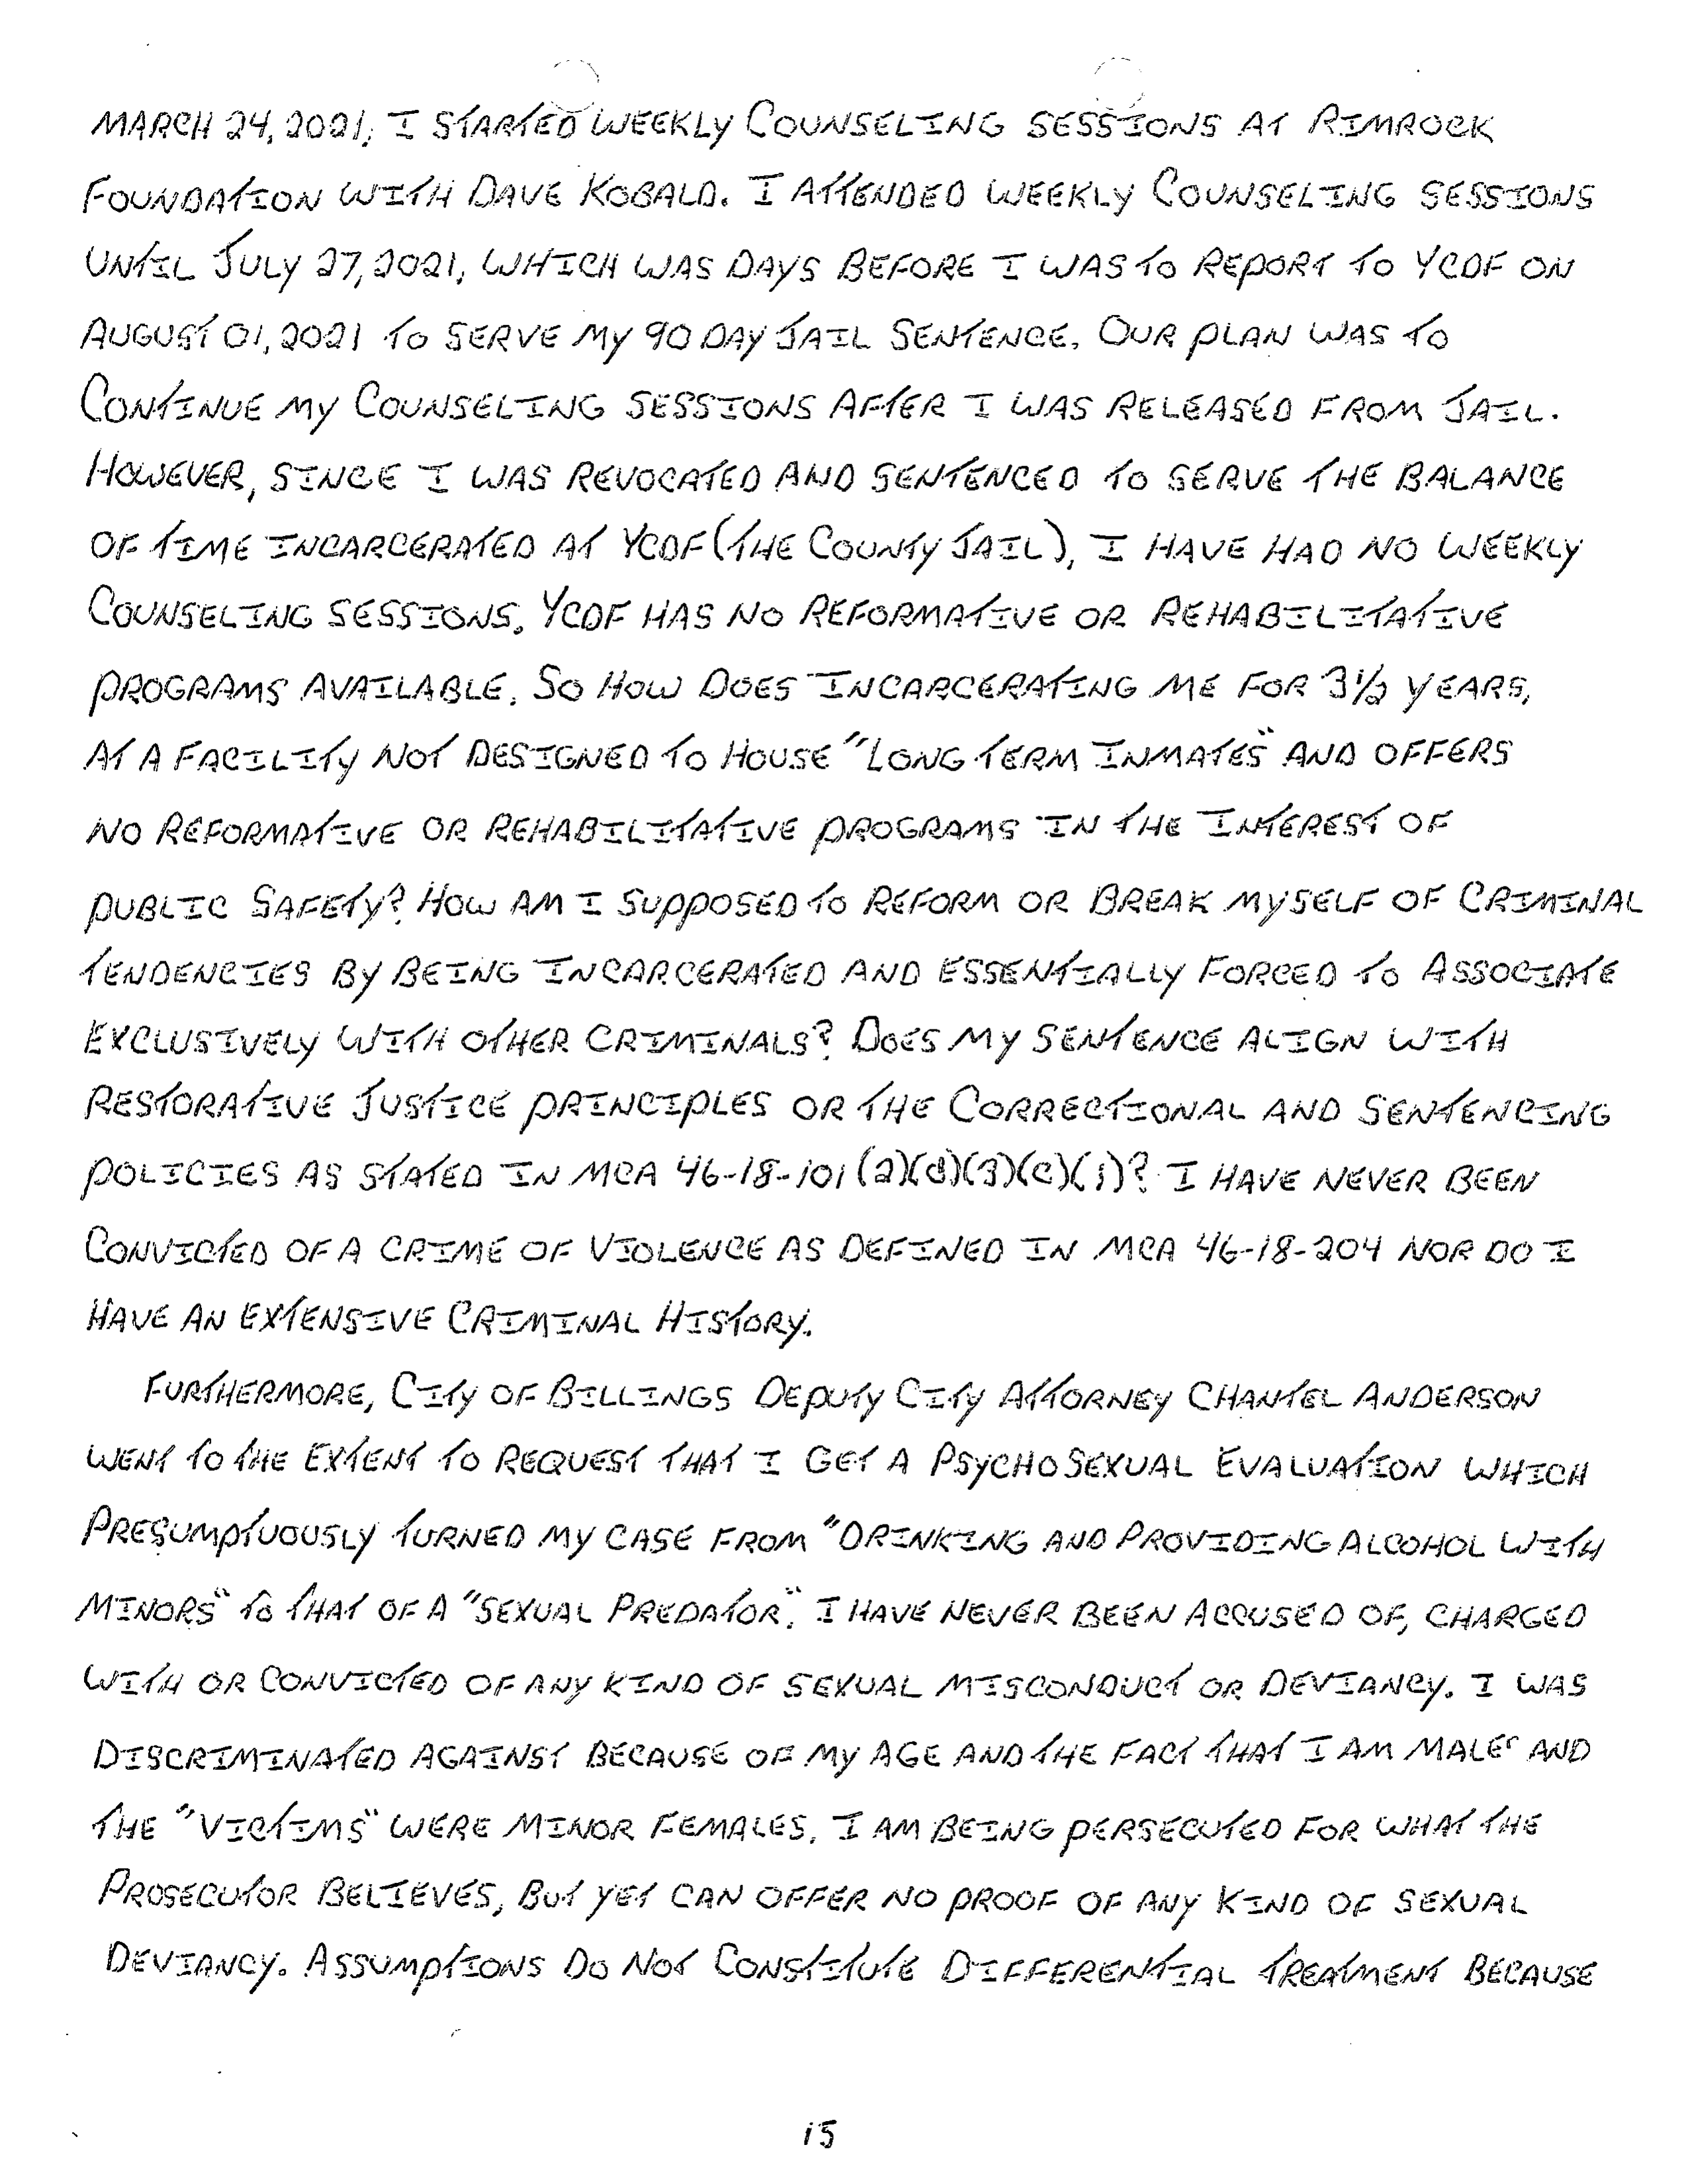 MARCH 24, 2021, I STARTED WEEKLY COUNSELING SESSIONS AT RIMROCK
FOUNDATION WITH DAVE KOBALD. I ATTENDED WEEKLY COUNSELING SESSIONS
UNTIL JULY 27, 2021, WHICH WAS DAYS BEFORE I WAS TO REPORT TO YCDF ON
AUGUST 01, 2021 TO SERVE MY 90 DAY JAIL SENTENCE. OUR PLAN WAS TO
CONTINUE MY COUNSELING SESSIONS AFTER I WAS RELEASED FROM JAIL.
HOWEVER, SINCE I WAS REVOCATED AND SENTENCED TO SERVE THE BALANCE
OF TIME INCARCERATED AT YCDF (THE COUNTY JAIL), I HAVE HAD NO WEEKLY
COUNSELING SESSIONS. YCDF HAS NO REFORMATIVE OR REHABILITATIVE
PROGRAMS AVAILABLE. SO HOW DOES INCARCERATING ME FOR 3 1/2 YEARS,
AT A FACILITY NOT DESIGNED TO HOUSE "LONG TERM INMATES" AND OFFERS
NO REFORMATIVE OR REHABILITATIVE PROGRAMS IN THE INTEREST OF
PUBLIC SAFETY? HOW AM I SUPPOSED TO REFORM OR BREAK MYSELF OF CRIMINAL
TENDENCIES BY BEING INCARCERATED AND ESSENTIALLY FORCED TO ASSOCIATE
EXCLUSIVELY WITH OTHER CRIMINALS? DOES MY SENTENCE ALIGN WITH
RESTORATIVE JUSTICE PRINCIPLES OR THE CORRECTIONAL AND SENTENCING
POLICIES AS STATED IN MCA 46-18-101 (2)(d)(3)(c)(i)? I HAVE NEVER BEEN
CONVICTED OF A CRIME OF VIOLENCE AS DEFINED IN MCA 46-18-204 NOR DO I
HAVE AN EXTENSIVE CRIMINAL HISTORY.
FURTHERMORE, CITY OF BILLINGS DEPUTY CITY ATTORNEY CHANTEL ANDERSON
WENT TO THE EXTENT TO REQUEST THAT I GET A PSYCHOSEXUAL EVALUATION WHICH
PRESUMPTUOUSLY TURNED MY CASE FROM "DRINKING AND PROVIDING ALCOHOL WITH
MINORS" TO THAT OF A "SEXUAL PREDATOR". I HAVE NEVER BEEN ACCUSED OF, CHARGED
WITH OR CONVICTED OF ANY KIND OF SEXUAL MISCONDUCT OR DEVIANCY. I WAS
DISCRIMINATED AGAINST BECAUSE OF MY AGE AND THE FACT THAT I AM MALE AND
THE "VICTIMS" WERE MINOR FEMALES. I AM BEING PERSECUTED FOR WHAT THE
PROSECUTOR BELIEVES, BUT YET CAN OFFER NO PROOF OF ANY KIND OF SEXUAL
DEVIANCY. ASSUMPTIONS DO NOT CONSTITUTE DIFFERENTIAL TREATMENT BECAUSE
15